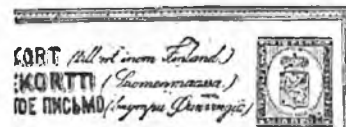 KORT (till ort inom Finland.)
KORTTI (Suomenmaassa.)
ОЕ ПИСЬМО (внутри Финляндіи)